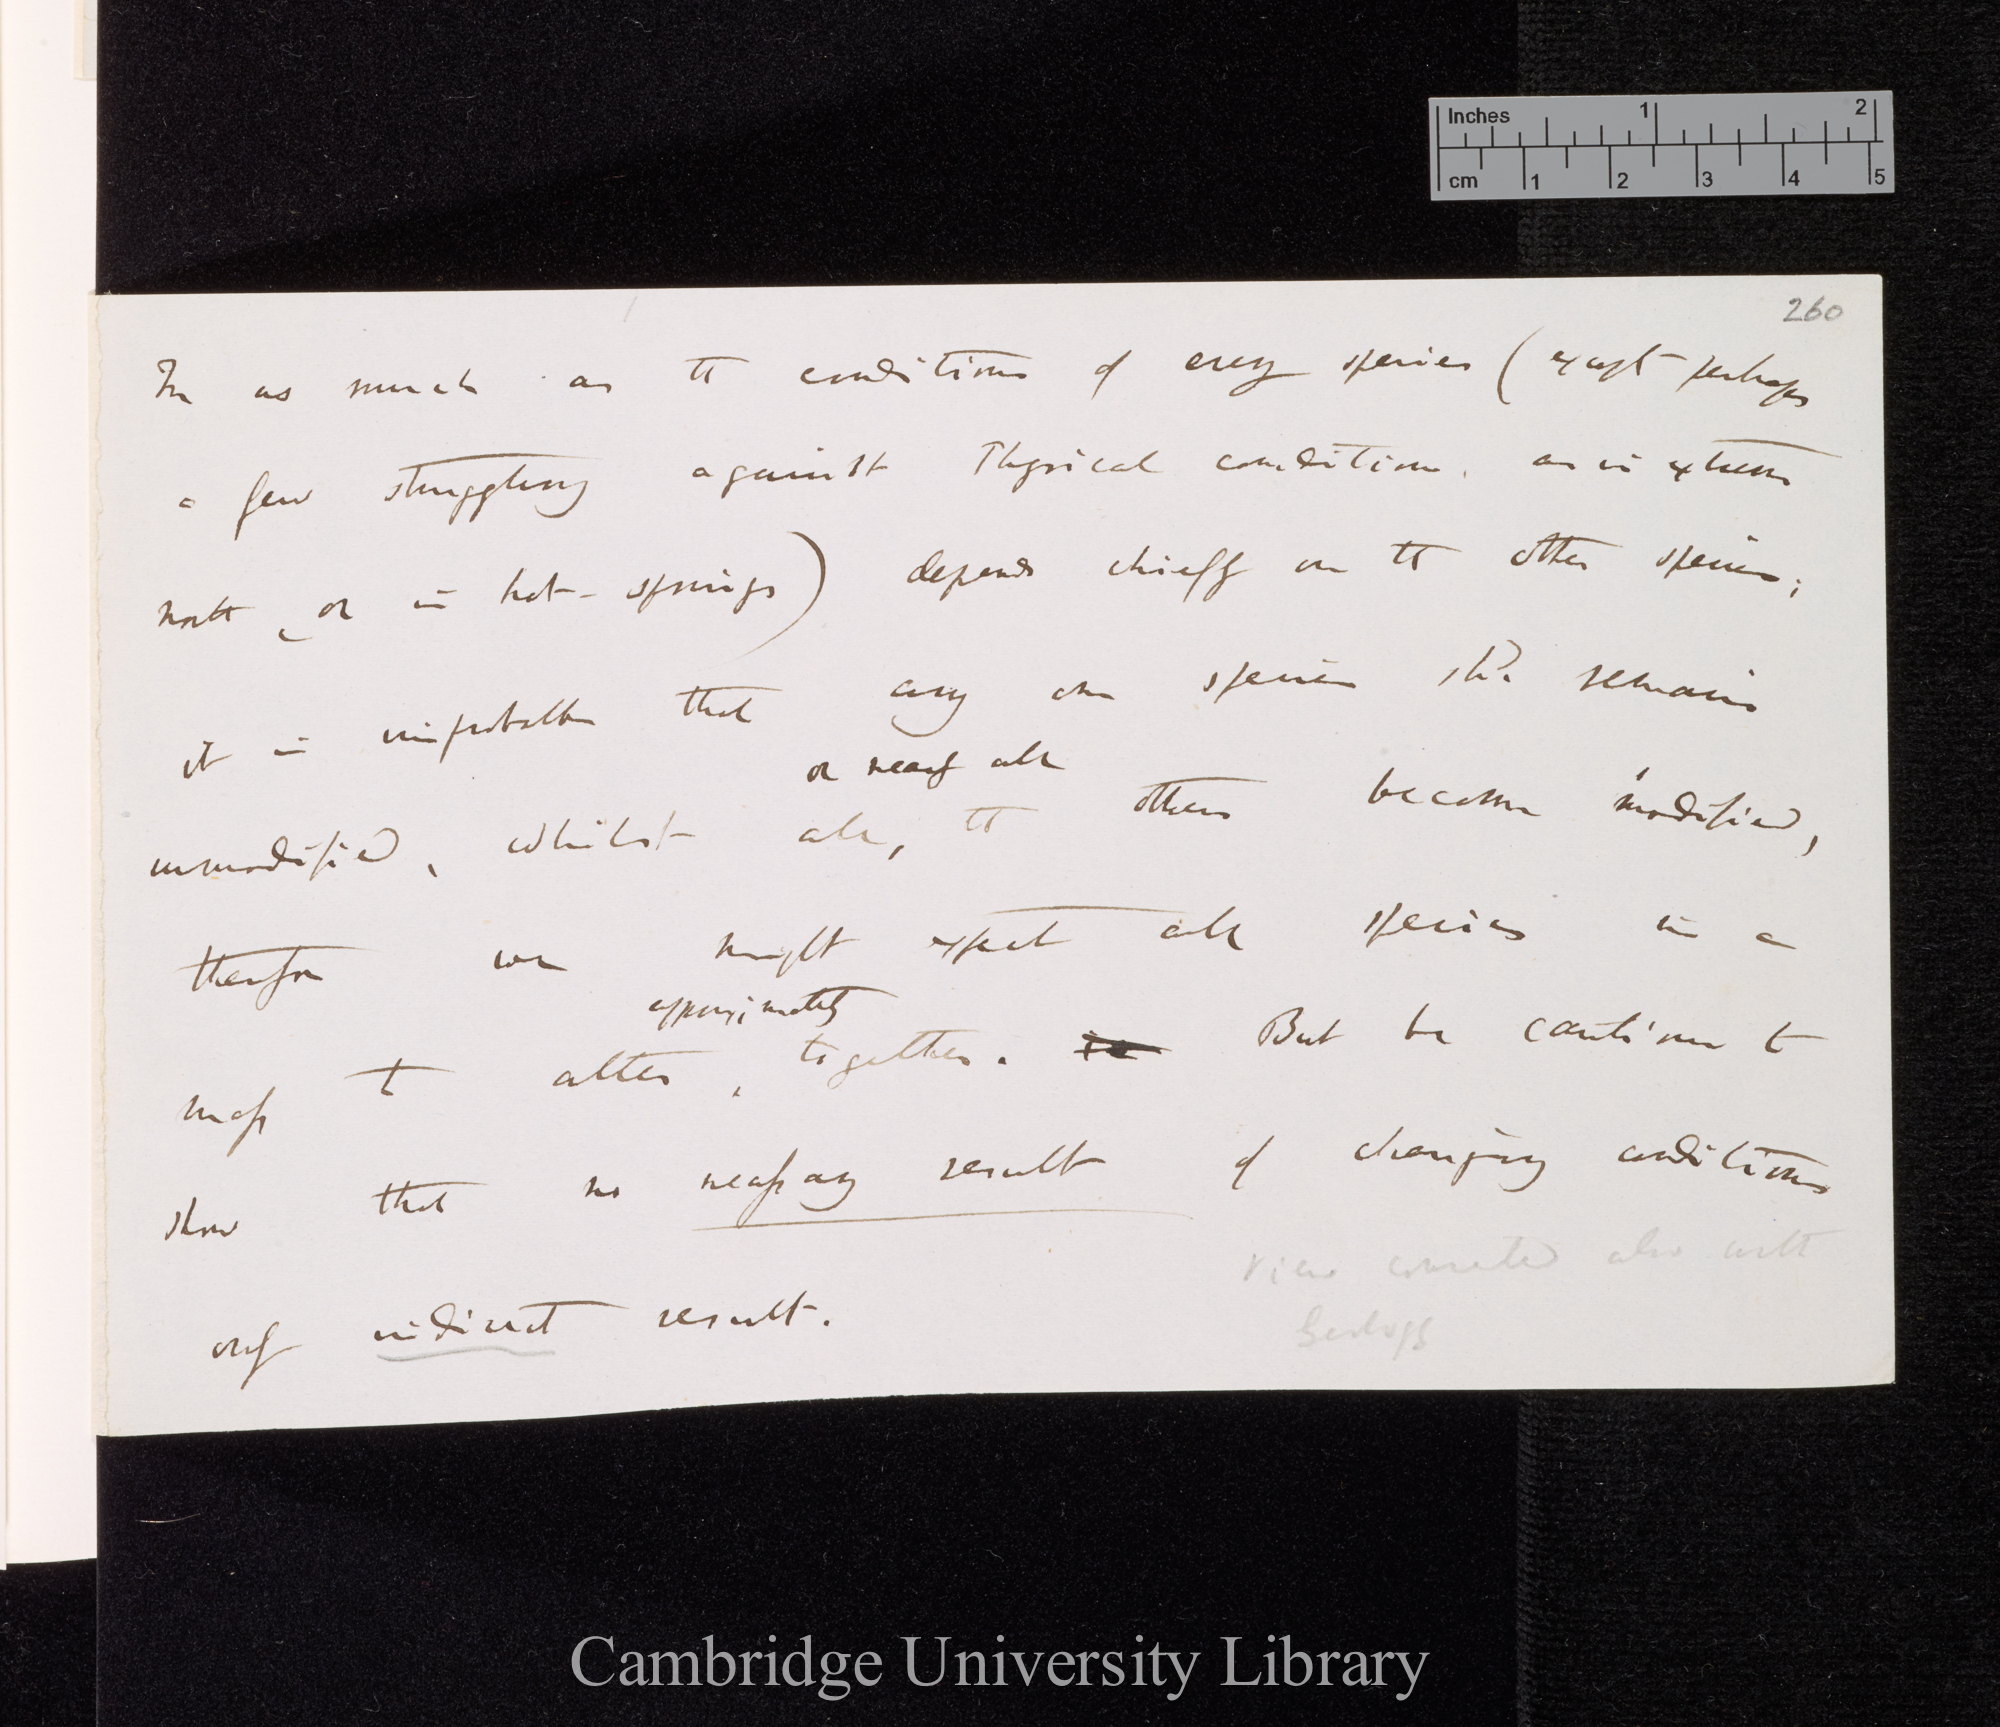 Inches 1 2
cm 1 2 3 4 5
260
In as much as the conditions of every species (except perhaps
a few struggling against Physical conditions, as in extreme
north, or in hot-springs) depends chiefly on the other species;
it is improbable that any one species shd. remain
or nearly all
unmodified, whilst all, the others become modified,
therefore we might expect all species in a
approximately
mass to alter, together. But be cautious to
show that no necessary result of changing conditions
only indirect result.
View connected also with
Geology
Cambridge University Library